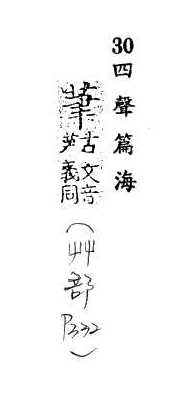 30 四聲篇海
茟 古文音
芛義同
(艸部
P332)